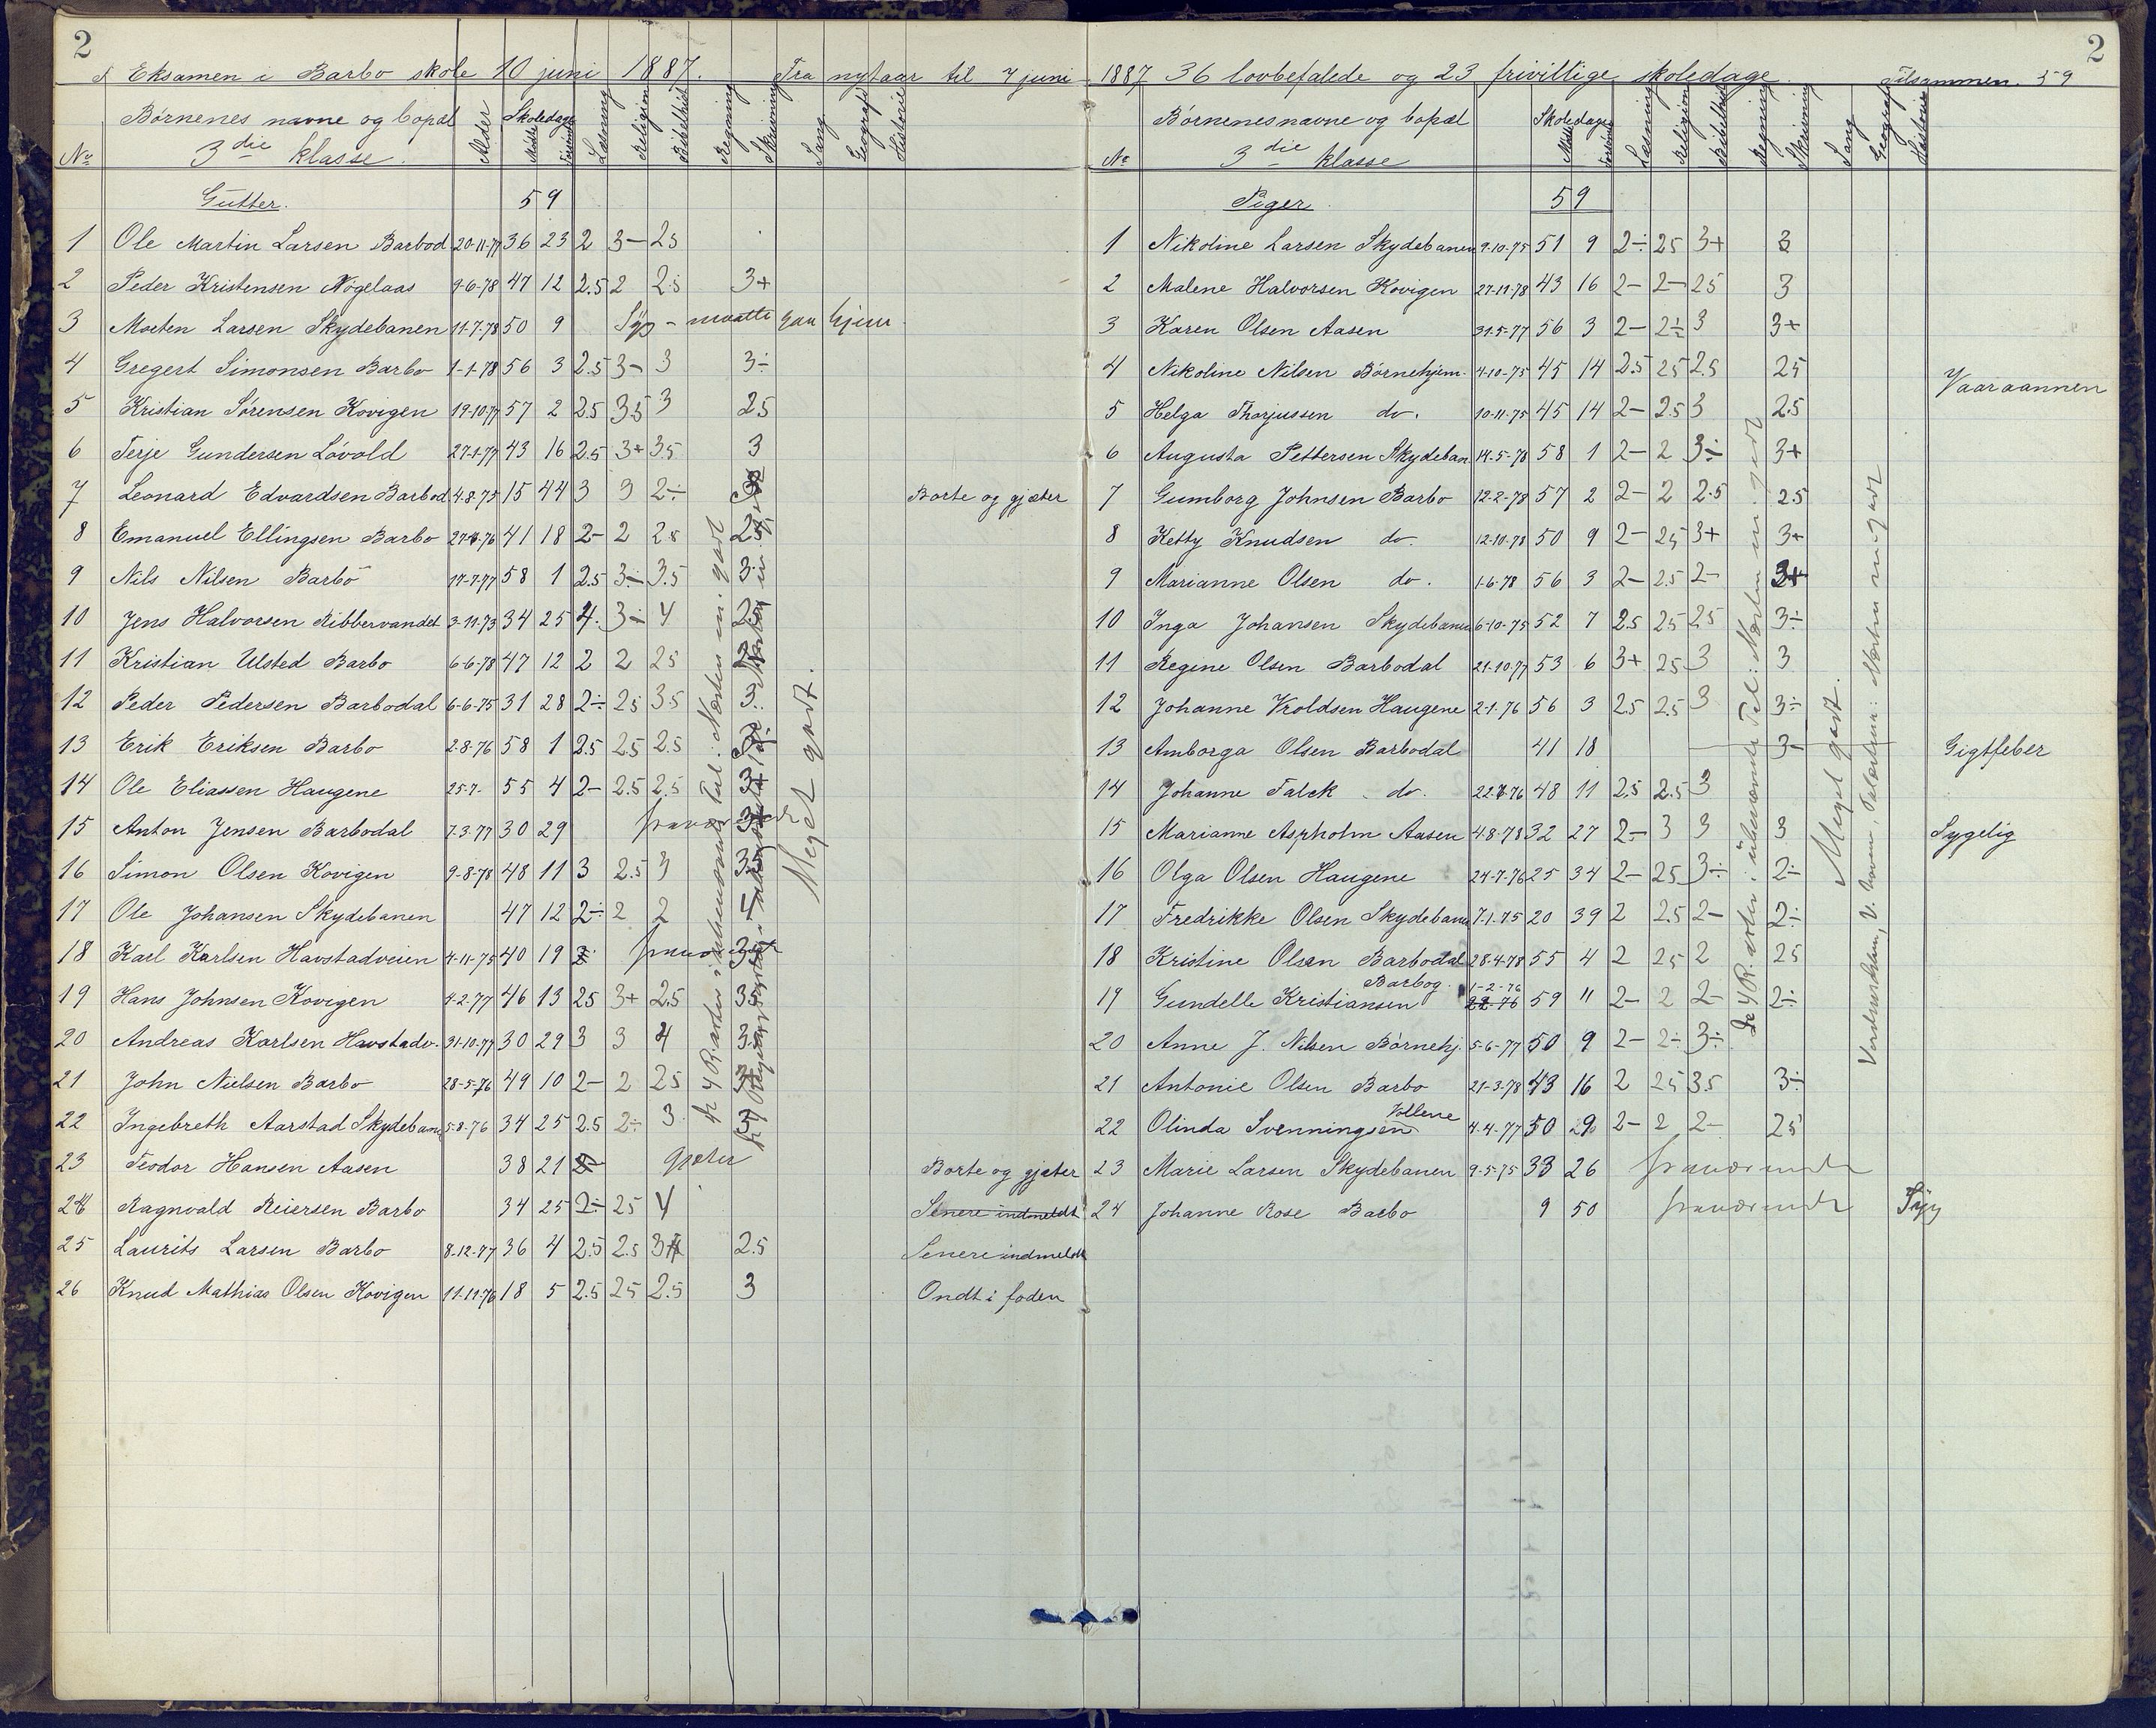 2
Eksamen i Barbo skole 10 juni 1887. Fra nytaar til 7 juni
No Børnenes navne og bopæl Alder Skoledage Mødte Forsømte Læsning Religion Bibelhist Regning Skrivning Sang Geografi Historie
3die klasse.
Gutter. 59
1 Ole Martin Larsen Barbod 20-11-77 36 23 2 3- 2.5
2 Peder Kristensen Nøgelaas 9-6-78 47 12 2.5 2 2.5 3+
3 Morten Larsen Skydebanen 11-7-78 50 9 Syg - maatte gaa hjem
4 Gregert Simonsen Barbo 1-1-78 56 3 2.5 3- 3 3÷
5 Kristian Sørensen Kovigen 19-10-77 57 2 2.5 3.5 3 2.5
6 Terje Gundersen Løvold 27-1-77 43 16 2.5 3+ 3.5 3
7 Leonard Edvardsen Barbod 4-8-75 15 44 3 3 2÷ Borte og gjæter
8 Emanuel Ellingsen Barbo 41 18 2- 2 2.5 2.5
9 Nils Nilsen Barbo 17-7-77 58 1 2.5 3÷ 3.5 3
10 Jens Halvorsen Ribbervandet 3-11-73 34 25 4. 3÷ 4 2.5
11 Kristian Ulsted Barbo 6-6-78 47 12 2 2 2.5
12 Peder Pedersen Barbodal 6-6-75 31 28 2÷ 2.5 3.5 3
13 Erik Eriksen Barbo 2-8-76 58 1 2.5 2.5 2.5
14 Ole Eliassen Haugene 25-7- 55 4 2- 2.5 2.5 3+
15 Anton Jensen Barbodal 7-3-77 30 29
16 Simon Olsen Kovigen 9-8-78 48 11 3 2.5 3 3.5
17 Ole Johansen Skydebanen 47 12 2÷ 2 2 4
18 Karl Karlsen Havstadveien 4-11-75 40 19 3.5
19 Hans Johnsen Kovigen 4-2-77 46 13 2.5 3+ 2.5 3.5
20 Andreas Karlsen Havstadv. 31-10-77 30 29 3 3 4 3
21 John Nielsen Barbo 28-5-76 49 10 2- 2 2.5
22 Ingebreth Aarstad Skydebane 5-8-76 34 25 2.5 2÷ 3
23 Teodor Hansen Aasen 38 21 gjæter Borte og gjæter
24 Ragnvald Reiersen Barbo 34 25 2÷ 2.5 4 Senere indmeldt
25 Laurits Larsen Barbo 8-12-77 36 4 2.5 2.5 3 2.5 Senere indmeldt
26 Knud Mathias Olsen Kovigen 11-11-76 18 5 2.5 2.5 2.5 3 Ondt i foden
Meget godt.
2
1887 36 lovbefalede og 23 frivillige skoledage. Tilsammen. 59
No Børnenes navne og bopæl Skoledage Mødte Forsømte Læsning Religion Bibelhist Regning Skrivning Sang Geografi Historie
3die klasse
Piger 59
1 Nikoline Larsen Skydebanen 9-10-75 51 9 2÷ 2.5 3+ 3
2 Malene Halvorsen Kovigen 27-11-78 43 16 2- 2- 2.5 3
3 Karen Olsen Aasen 31-5-77 56 3 2- 2÷ 3 3+
4 Nikoline Nilsen Børnehjem. 4-10-75 45 14 2.5 2.5 2.5 2.5 Vaaraannen
5 Helga Thorjussen do. 10-11-75 45 14 2- 2.5 3 2.5
6 Augusta Pettersen Skydeban 14-5-78 58 1 2- 2 3÷ 3+
7 Gumborg Johnsen Barbo 12-2-78 57 2 2- 2 2.5 2.5
8 Ketty Knudsen do. 12-10-78 50 9 2- 2.5 3+ 3+
9 Marianne Olsen do. 1-6-78 56 3 2- 2.5 2-
10 Inga Johansen Skydebanen 6-10-75 52 7 2.5 2.5 2.5 3÷
11 Regine Olsen Barbodal 21-10-77 53 6 3+ 2.5 3 3
12 Johanne Vroldsen Haugene 2-1-76 56 3 2.5 2.5 3 3÷
13 Amborga Olsen Barbodal 41 18 3- Gigtfeber
14 Johanne Falck do. 48 11 2.5 2.5 3
15 Marianne Aspholm Aasen 4-8-78 32 27 2- 3 3 3 Sygelig
16 Olga Olsen Haugene 24-7-76 25 34 2- 2.5 3÷ 2÷
17 Fredrikke Olsen Skydebanen 7-1-75 20 39 2 2.5 2- 2÷
18 Kristine Olsen Barbodal 28-4-78 55 4 2 2.5 2 2.5
19 Gundelle Kristiansen Barbog. 1-2-76 59 " 2- 2 2- 2÷
20 Anne J. Nilsen Børnehj. 5-6-77 50 9 2- 2÷ 3÷
21 Antonie Olsen Barbo 21-3-78 43 16 2 2.5 3.5 3÷
22 Olinda Svenningsen Vollene 4-4-77 50 2- 2 2- 2.5
23 Marie Larsen Skydebanen 9-5-75 33 26 fraværende
24 Johanne Rose Barbo 9 50 fraværende Syg
Meget godt.